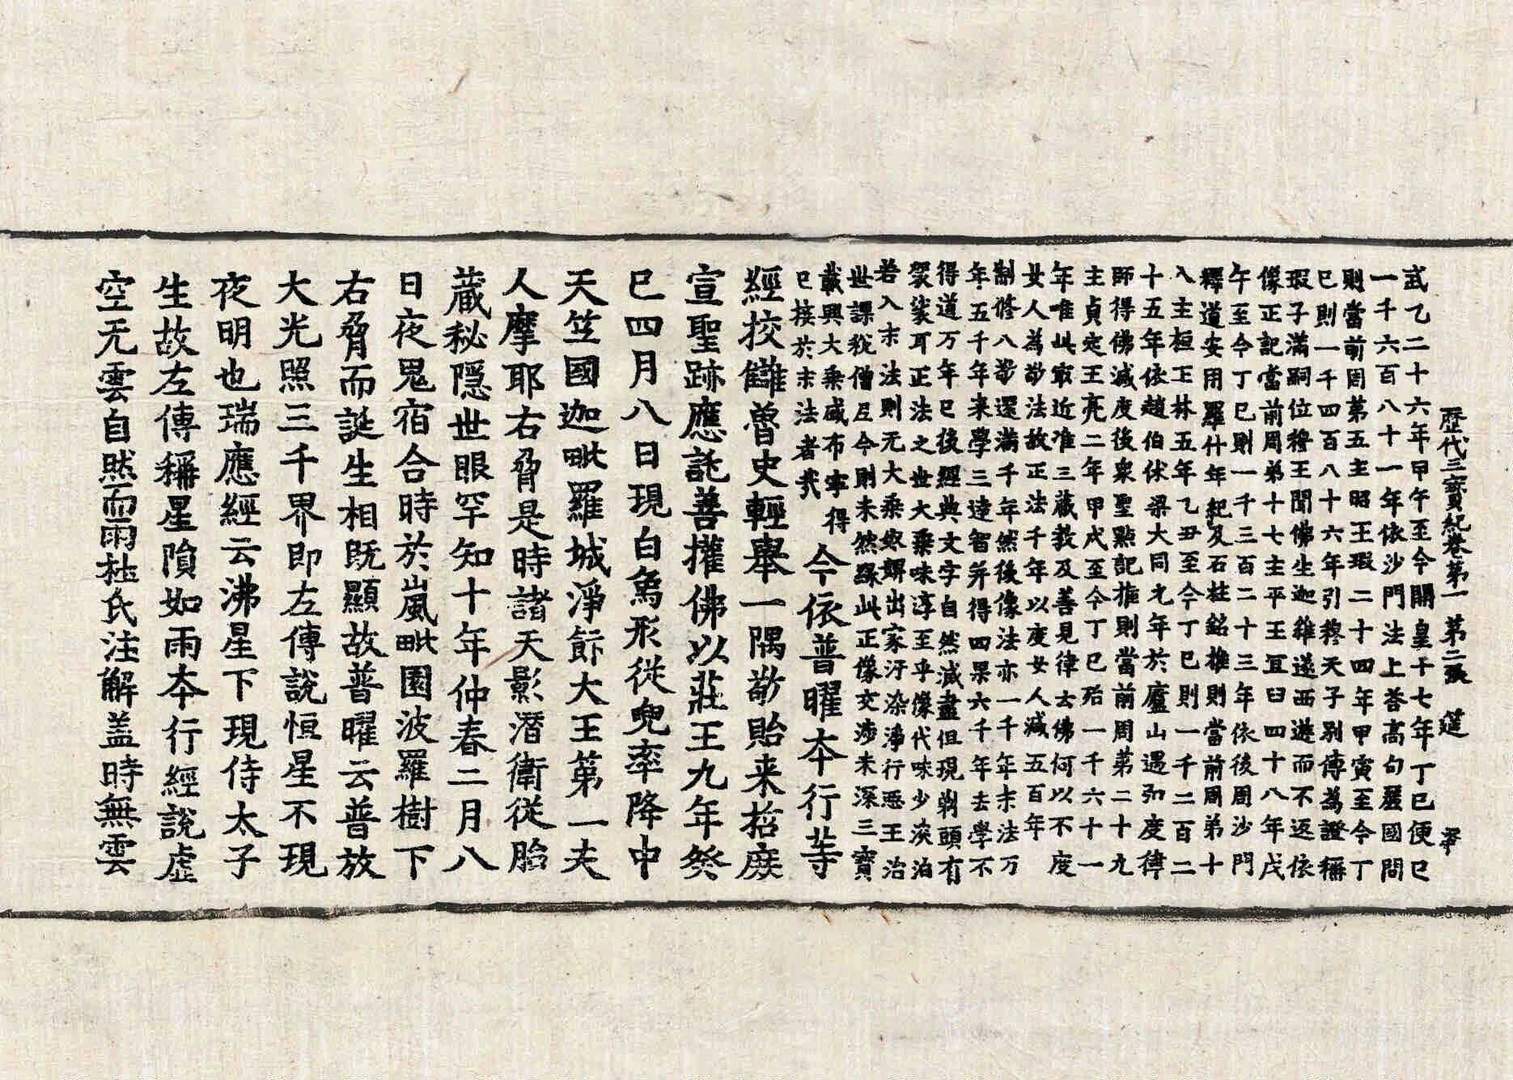 歷代三寶紀卷第一 第二張 莚
武乙二十六年甲午至今開皇十七年丁巳便已
一千六百八十一年依沙門法上荅高句麗國問
則當前周第五主昭王瑕二十四年甲寅至今丁
巳則一千四百八十六年引穆天子別傳為證稱
瑕子滿嗣位穆王聞佛生迦維遂西遊而不返依
像正記當前周弟十七主平王宜臼四十八年戊
午至今丁巳則一千三百二十三年依後周沙門
釋道安用羅什年紀及石柱銘推則當前周弟十
八主桓王林五年乙丑至今丁巳則一千二百二
十五年依趙伯休梁大同元年於廬山遇弘度律
師得佛滅度後衆聖點記推則當前周苐二十九
主貞定王亮二年甲戌至今丁巳殆一千六十一
年唯此冣近准三藏教及善見律云佛何以不度
女人為敬法故正法千年以度女人減五百年
制修八敬還滿千年然後像法亦一千年末法万
年五千年來學三達智并得四果六千年去學不
得道万年已後經典文字自然滅盡但現剃頭有
袈裟耳正法之世大乗味淳至乎像代味少淡泊
若入末法則无大乘 出家汙染淨行惡王治
世課稅僧尼今則未然緣此正像交涉未深三寶
載興大乗盛布寧得
巳接於末法者㢤
今依普曜夲行䓁
經挍讎魯史輕舉一隅敬貽来哲庶
宣聖跡應託善權佛以莊王九年癸
巳四月八日現白象形從兜率降中
天竺國迦毗羅城淨飯大王第一夫
人摩耶右脅是時諸天影潛衛從胎
藏秘隱世眼罕知十年仲春二月八
日夜鬼宿合時於嵐毗園波羅樹下
右脅而誕生相既顯故普曜云普放
大光照三千界即左傳說恒星不現
夜明也瑞應經云沸星下現侍太子
生故左傳稱星隕如雨夲行經說虛
空无雲自然而雨杜氏注解盖時無雲